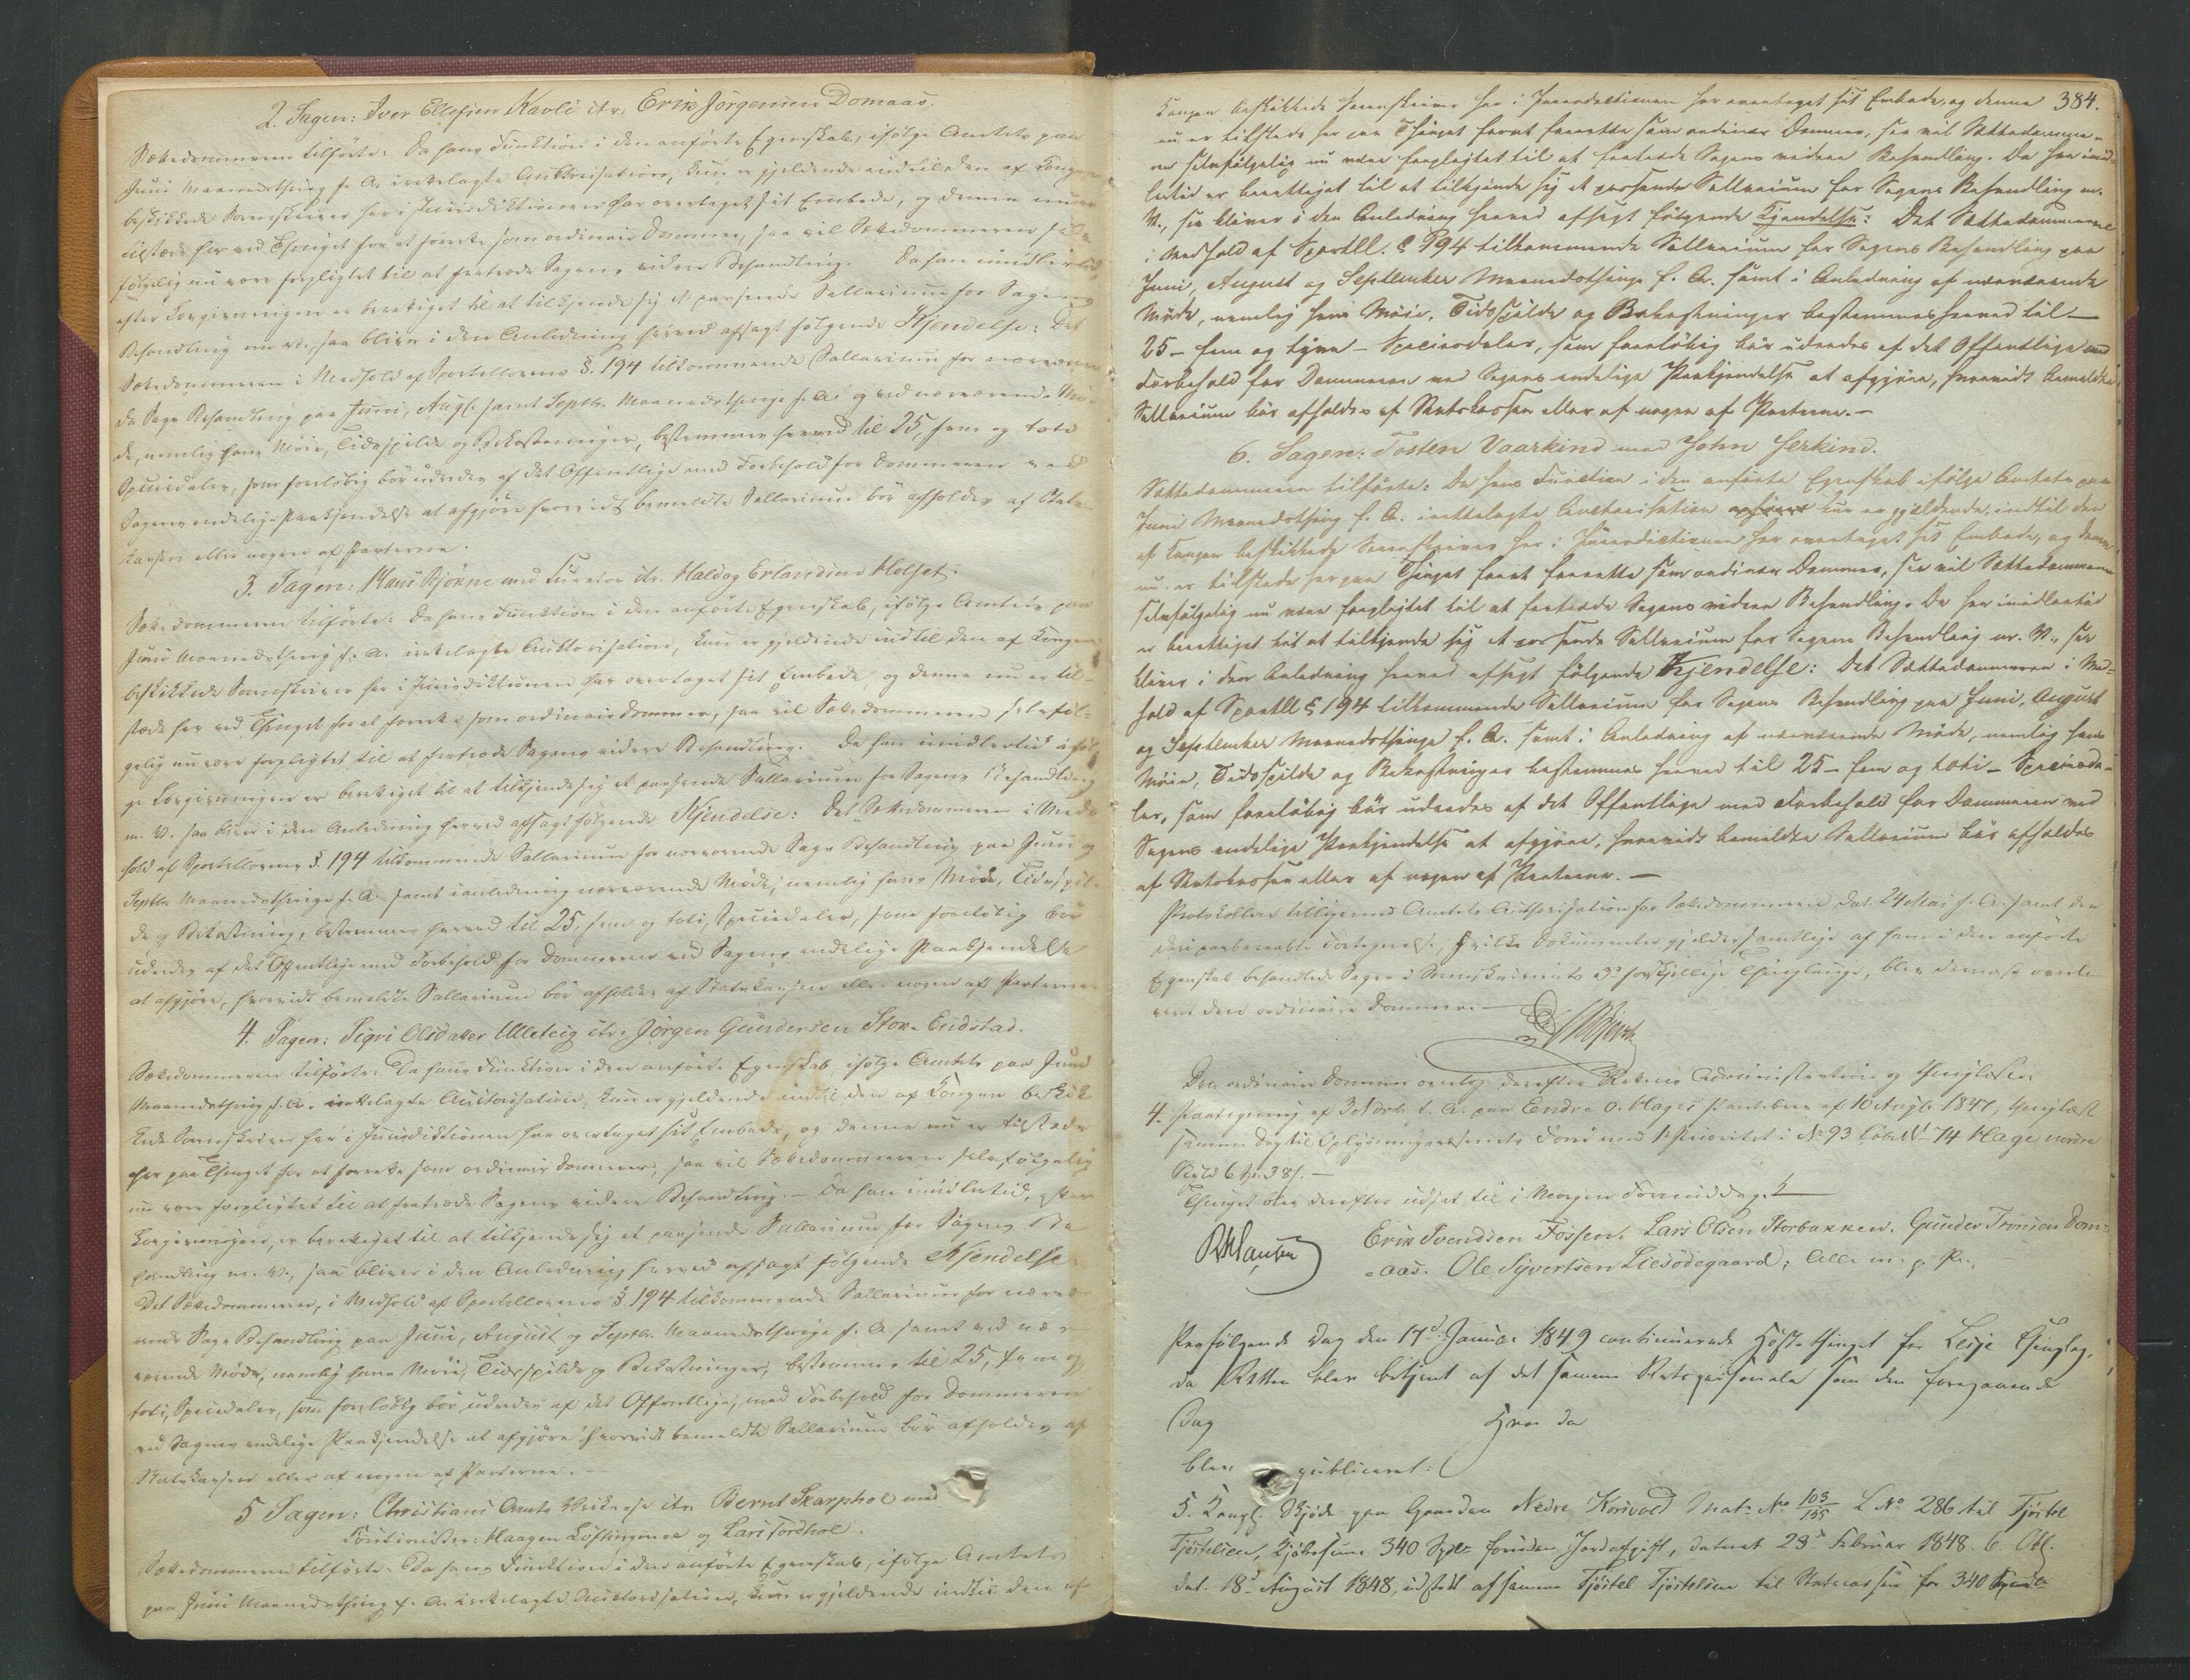 2. Sagen: Iver Ellefsen Kavli ctr. Erik Jörgensen Domaas.
Sættedommeren tilförte: Da hans Funktion i den anförte Egenskab, ifölge Amtets paa
Juni Maanedsthing f. A. irettelagte Authorisation, kun er gjeldende indtil den af Kongen
beskikkede Sorenskriver her i Jurisdiktionen har overtaget sit Embede, og denne nu er
tilstæde her ved Thinget for at forrette som ordinair Dommer, saa vil Sættedommeren selv-
fölgelig nu være forpligtet til at fratræde Sagens videre Behandling. Da han imidlertid
efter Lovgivningen er berettiget til at tilkjende sig et passende Sallarium for Sagens
Behandling m. v., saa bliver i den Anledning herved afsagt fölgende Kjendelse: Det
Sættedommeren i Medhold af Sportellovens §. 194 tilkommende Sallarium for nærværen-
de Sags Behandling paa Juni, Augl. samt Septbr. Maanedsthinge f. A. og ved nærværende Mö-
de, nemlig hans Möie, Tidsspilde og Bekostninger, bestemmes herved til 25, fem og tyve
Speciedaler, som forelöbig bör udredes af det Offentlige med Forbehold for Dommeren ved
Sagens endelige Paakjendelse at afgjöre hvorvidt bemeldte Sallarium bör afholdes af Stats-
kassen eller nogen af Parterne.
3. Sagen: Hans Bjönne med Curator ctr. Haldog Erlandsen Holset.
Sættedommeren tilförte: Da hans Funktion i den anförte Egenskab, ifölge Amtets paa
Juni Maanedsthing f. A. irettelagte Authorisation, kun er gjeldende indtil den af Kongen
beskikkede Sorenskriver her i Jurisdiktionen har overtaget sit Embede, og denne nu er til-
stæde her ved Thinget for at forrette som ordinair Dommer, saa vil Sættedommeren selvföl-
gelig nu være forpligtet til at fratræde Sagens videre Behandling. Da han imidlertid iföl-
ge Lovgivningen er berettiget til at tilkjende sig et passende Sallarium for Sagens Behandling
m. v. saa bliver i den Anledning herved afsagt fölgende Kjendelse: Det Sættedommeren i Med-
hold af Sportellovens §. 194 tilkommende Sallarium for nærværende Sags Behandling paa Juni og
Septbr. Maanedsthinge f. A. samt i anledning nærværende Möde, nemlig hans Möie, Tidsspil-
de og Bekostning, bestemmes herved til 25, fem og tyve, Speciedaler, som forelöbig bör
udredes af det Offentlige med Forbehold for Dommeren ved Sagens endelige Paakjendelse
at afgjöre, hvorvidt bemeldte Sallarium bör afholdes af Statskassen eller nogen af Parterne
4. Sagen: Sigri Olsdatter Ulleteig ctr. Jörgen Gundersen Stor-Endstad.
Sættedommeren tilförte: Da hans Funktion i den anförte Egenskab, ifölge Amtets paa Juni
Maanedsthing f. A. irettelagte Auctorisation, kun er gjeldende indtil den af Kongen beskik-
kede Sorenskriver her i Jurisdiktionen har overtaget sit Embede, og denne nu er tilstæde
her paa Thinget for at forrette som ordinair Dommer, saa vil Sættedommeren selvfölgelig
nu være forpligtet til at fratræde Sagens videre Behandling. – Da han imidlertid, efter
Lovgivningen, er berettiget til at tilkjende sig et passende Sallarium for Sagens Be-
handling m. v., saa bliver i den Anledning herved afsagt fölgende Kjendelse:
Det Sættedommeren, i Medhold af Sportellovens §. 194 tilkommende Sallarium for nærvæ-
rende Sags Behandling paa Juni, August og Septbr. Maanedsthinge f. A. samt ved nær-
værende Möde, nemlig hans Möie, Tidsspilde og Bekostninger, bestemmes til 25, fem og
tyve, Speciedaler, som forelöbig bör udredes af det Offentlige, med Forbehold for Dommeren
ved Sagens endelige Paakjendelse at afgjöre hvorvidt bemeldte Sallarium bör afholdes af
Statskassen eller af nogen af Parterne. –
5 Sagen: Christians Amts Veikasse ctr. Bernt Skarphol med
Cautionister: Haagen Löftingsmoe og Lars Fordhol.
Sættedommeren tilförte: Da hans Funktion i den anförte Egenskab, ifölge Amtets
paa Juni Maanedsthing f. A. irettelagte Auctorisation, kun er gjeldende indtil den af
384.
Kongen beskikkede Sorenskriver her i Jurisdictionen har overtaget sit Embede, og denne
nu er tilstede her paa Thinget forat forrette som ordinær Dommer, saa vil Sættedomme-
ren selvfölgelig nu være forpligtet til at fratræde Sagens videre Behandling. Da han imid-
lertid er berettiget til at tilkjende sig et passende Sallarium for Sagens Behandling m.
V., saa bliver i den Anledning herved afsagt fölgende Kjendelse: Det Sættedommeren
i Medhold af Sportell. § 194 tilkommende Sallarium for Sagens Behandling paa
Juni, August og September Maanedsthinge f. A. samt i Anledning af nærværende
Möde, nemlig hans Möie, Tidsspilde og Bekostninger bestemmes herved til –
25 – fem og tyve – Speciesdaler, som foreløbig bör udredes af det Offentlige med
Forbehold for Dommeren ved Sagens endelige Paakjendelse at afgjöre, hvorvidt bemeldte
Sallarium bör afholdes af Statskassen eller af nogen af Parterne. –
6. Sagen: Tosten Vaarkind mod John Jerkind.
Sættedommeren tilförte: Da hans Function i den anförte Egenskab ifölge Amtets paa
Juni Maanedsthing f. A. irettelagte Auctorisation kun er gjældende, indtil den
af Kongen beskikkede Sorenskriver her i Jurisdictionen har overtaget sit Embede, og denne
nu er tilstede her paa Thinget forat forrette som ordinær Dommer, saa vil Sættedommeren
selvfölgelig nu være forpligtet til at fratræde Sagens videre Behandling. Da han imidlertid
er berettiget til at tilkjende sig et passende Sallarium for Sagens Behandling m. V., saa
bliver i den Anledning herved afsagt fölgende Kjendelse: Det Sættedommeren i Med-
hold af Sportll § 194 tilkommende Sallarium for Sagens Behandling paa Juni, August
og September Maanedsthinge f. A. samt i Anledning af nærværende Möde, nemlig hans
Möie, Tidsspilde og Bekostninger bestemmes herved til 25 – fem og tyve – Speciesda-
ler, som foreløbig bör udredes af det Offentlige med Forbehold for Dommeren ved
Sagens endelige Paakjendelse at afgjöre, hvorvidt bemeldte Sallarium bör afholdes
af Statskassen eller af nogen af Parterne. –
Protokollen tilligemed Amtets Authorisation for Sættedommeren dat. 24 Mai f. A. samt den
deri paaberaabte Fortegnelse, hvilke Dokumenter gjelder samtlige af ham i den anförte
Egenskab behandlede Sager i Sorenskriveriets 3de forskjellige Thinglauge, blev dernæst overle-
veret den ordinaire Dommer. –
Den ordinaire Dommer overtog derefter Rettens Administration og thinglæste:
4. Paategning af 3 Novbr. f. A. paa Endre O. Hages Pantebrev af 10 Augl. 1847, thinglæst
samme Dag til Oplysningsvæsenets Fond med Prioritet i No 93 Löbe No 74 Hage nordre
Skyld 6
Thinget blev derefter udsat til i Morgen Formiddag.
Erik Svendsen Fossen. Lars Olsen Storbakken. Gunder Tronsen Dom-
aas. Ole Syvertsen Liesödegaard; Alle m. p. P.,
Paafölgende Dag den 17d Januar 1849 continuerede Höstethinget for Lesje Thinglag,
da Retten blev betjent af det samme Retspersonale som den foregaaende
Dag Hvor da
blev publiceret:
5. Kongl. Skjöde paa Gaarden Nedre Korsvold Matr. No 103/155 L No 286 til Tjöstel
Tjöstelsen, Kjöbesum 340 Spdlr foruden Jordafgift, dateret 23de Februar 1848. 6. Obl.
dat. 18de August 1848, udstedt af samme Tjöstel Tjöstelsen til Statscassen for 340 Spdlr